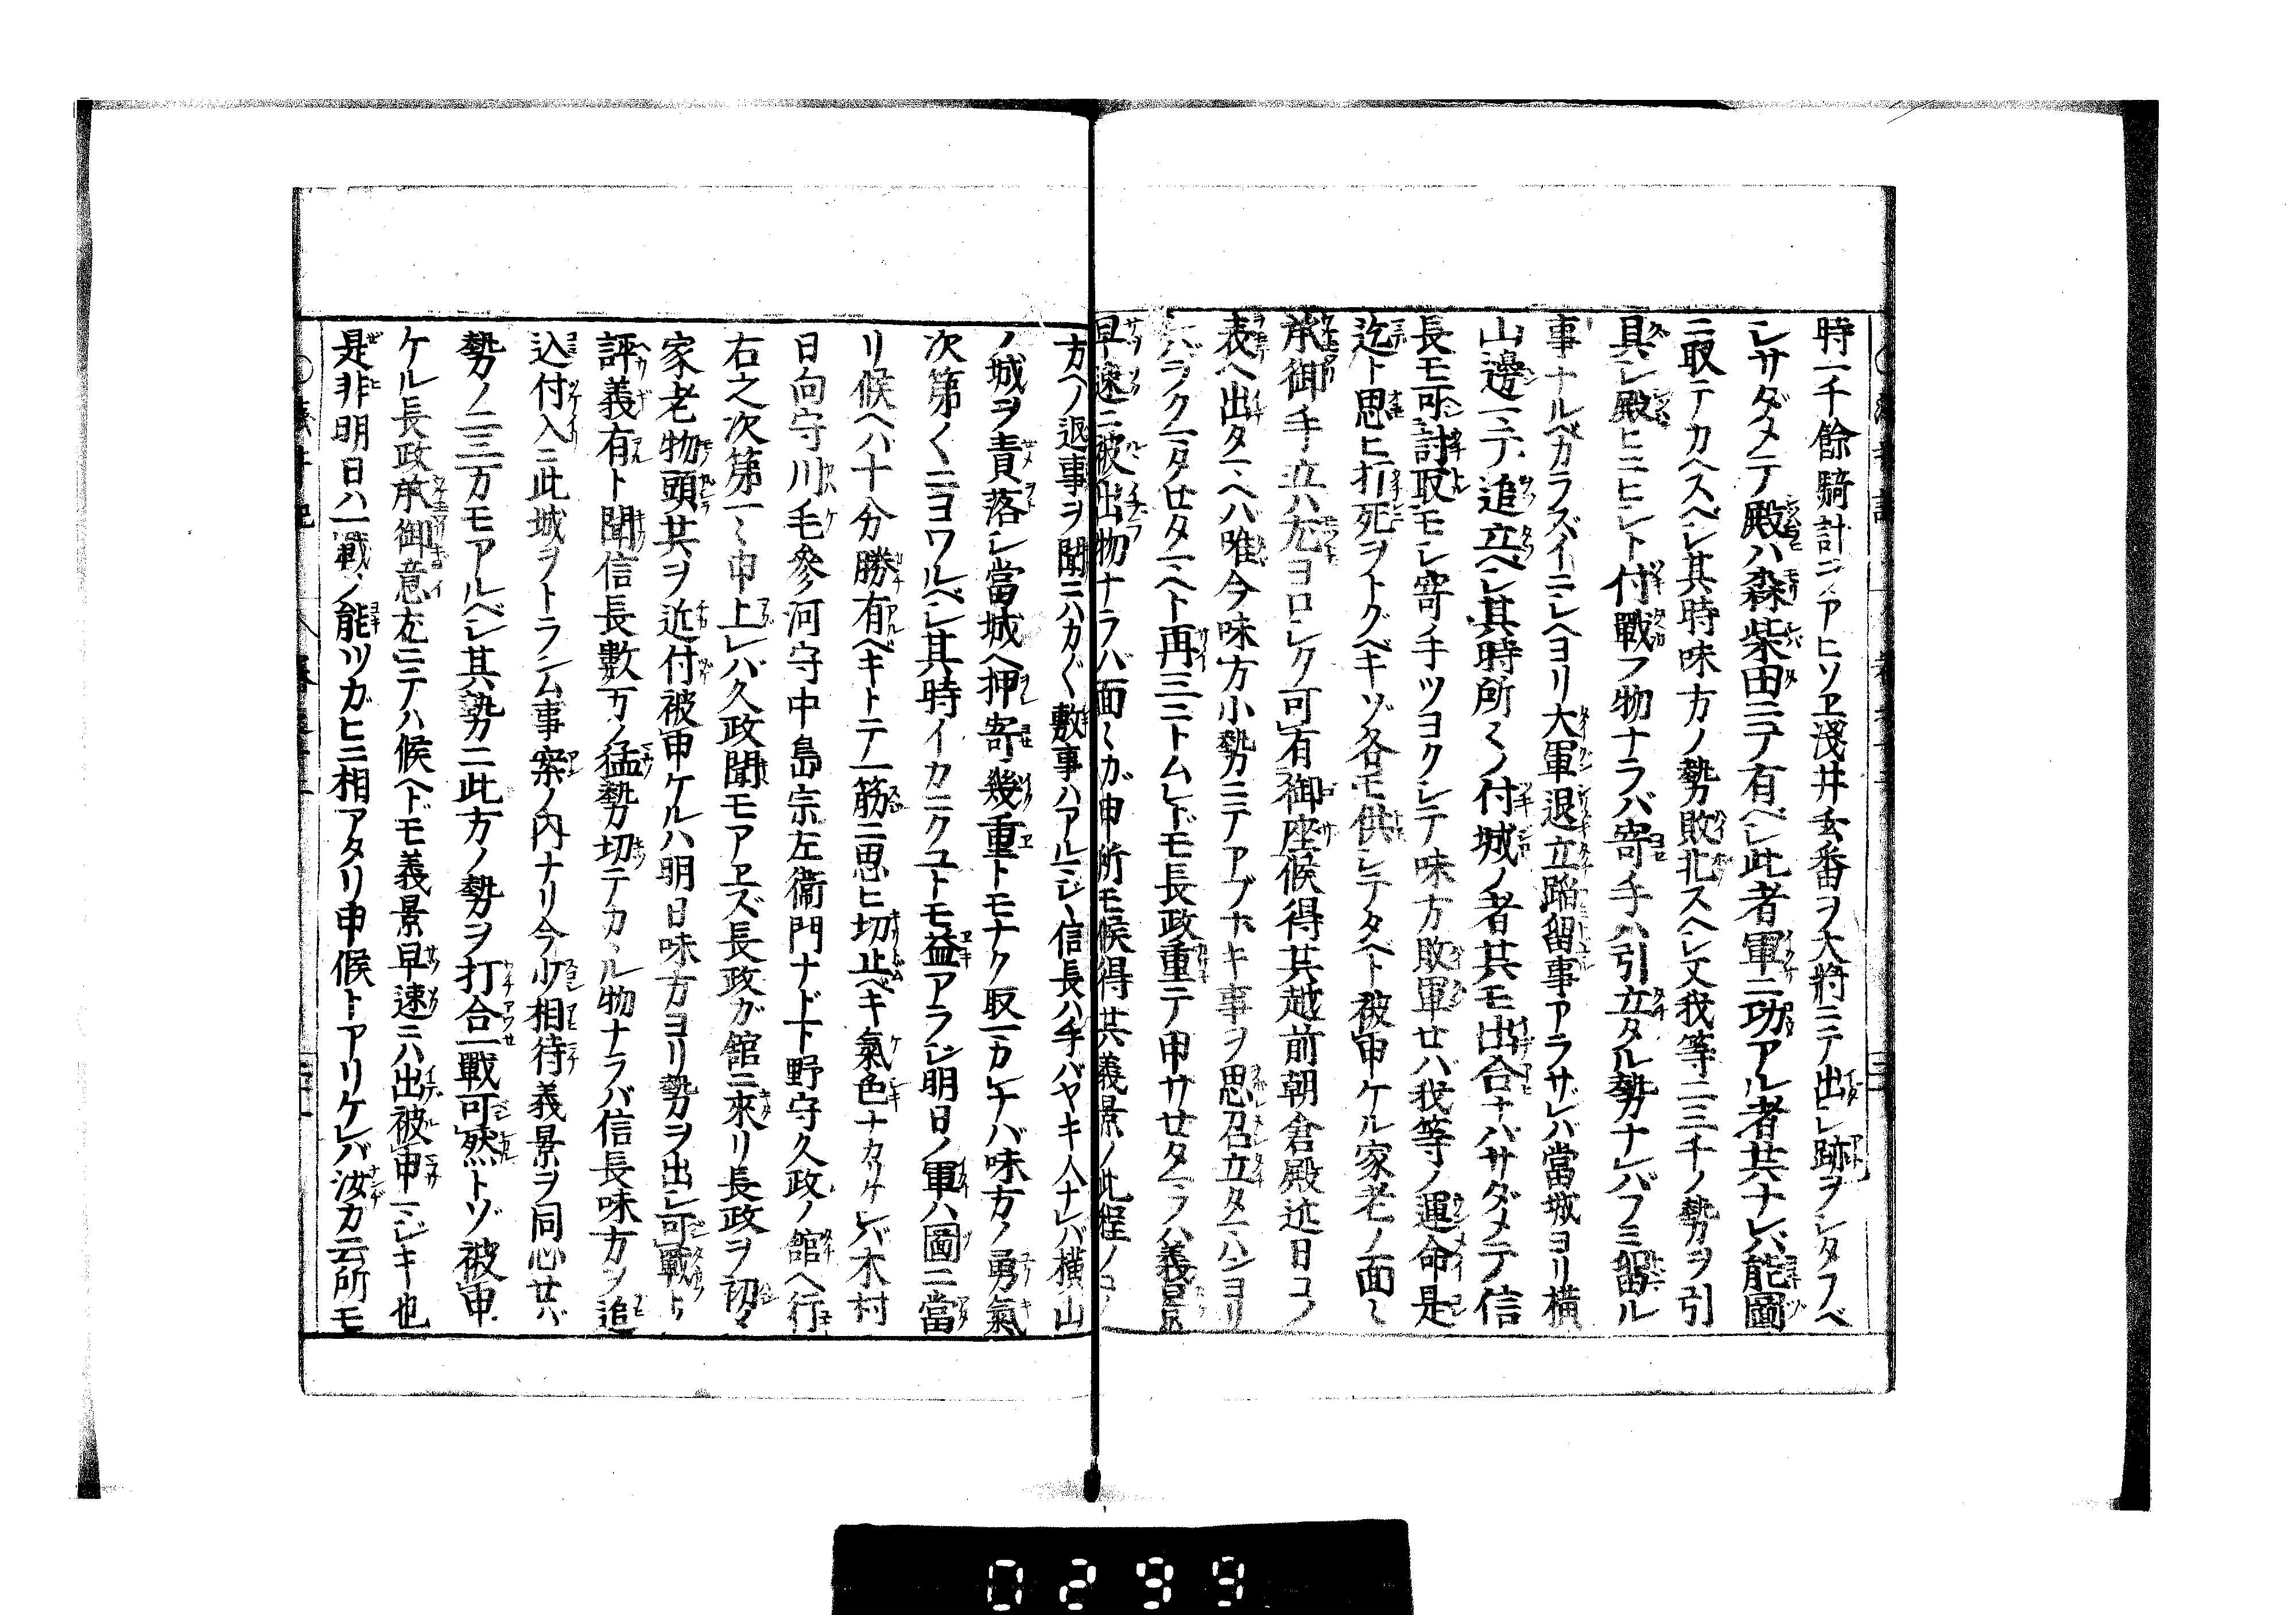 時一千餘騎計ニアヒソヱ淺井玄番ヲ大將ニテ出シ跡ヲシタフベ
シサダメテ殿ハ森柴田ニテ有ベシ此者軍ニ功アル者共ナレバ能圖
ニ取テカヘスベシ其時味方ノ勢敗北スヘシ又我等二三千ノ勢ヲ引
具シ殿ヒニヒシト付戰フ物ナラバ寄手ハ引立タル勢ナレバフミ留ル
事ナルベカラズイニシヘヨリ大軍退立蹈留事アラザレバ當城ヨリ橫
山邊マテ追立ベシ其時所〱ノ付城ノ者共モ出合ナバサダメテ信
長モ可討取モシ寄手ツヨクシテ味方敗軍セバ我等ノ運命是
迄ト思ヒ打死ヲトグベキゾ各モ供シテタベト被申ケル家老ノ面〻
承御手立ハ尤ヨロシク可有御座候得共越前朝倉殿近日コノ
表ヘ出タマヘバ唯今味方小勢ニテアブナキ事ヲ思召立タマハンヨリ
シバラクマタセタマヘト再三トムレドモ長政重テ申サセタマフハ義景
早速ニ被出物ナラバ面〻ガ申所モ候得共義景ノ此程ノコノ
方ヘノ返事ヲ聞ニハカ〲敷事ハアルマジ信長ハ手バヤキ人ナレバ橫山
ノ城ヲ責落シ當城ヘ押寄幾重トモナク取マカレナバ味方ノ勇氣
次第〱ニヨワルベシ其時イカニクユトモ益アラジ明日ノ軍ハ圖ニ當
リ候ヘハ十分勝有ベキトテ一筋ニ思ヒ切止ベキ氣色ナカリケレバ木村
日向守川毛參河守中島宗左衞門ナド下野守久政ノ館ヘ行
右之次第一〻申上レバ久政聞モアヱズ長政ガ館ニ來リ長政ヲ初メ
家老物頭共ヲ近付被申ケルハ明日味方ヨリ勢ヲ出シ可戰ト
評義有ト聞信長數万ノ猛勢切テカヽル物ナラバ信長味方ヲ追
込付入ニ此城ヲトラン事案ノ内ナリ今少相待義景ヲ同心セバ
勢ノ二三万モアルベシ其勢ニ此方ノ勢ヲ打合一戰可然トゾ被申
ケル長政承御意尤ニテハ候ヘドモ義景早速ニハ出被申マジキ也
是非明日ハ一戰ノ能ツガヒニ相アタリ申候トアリケレバ汝カ云所モ
0299